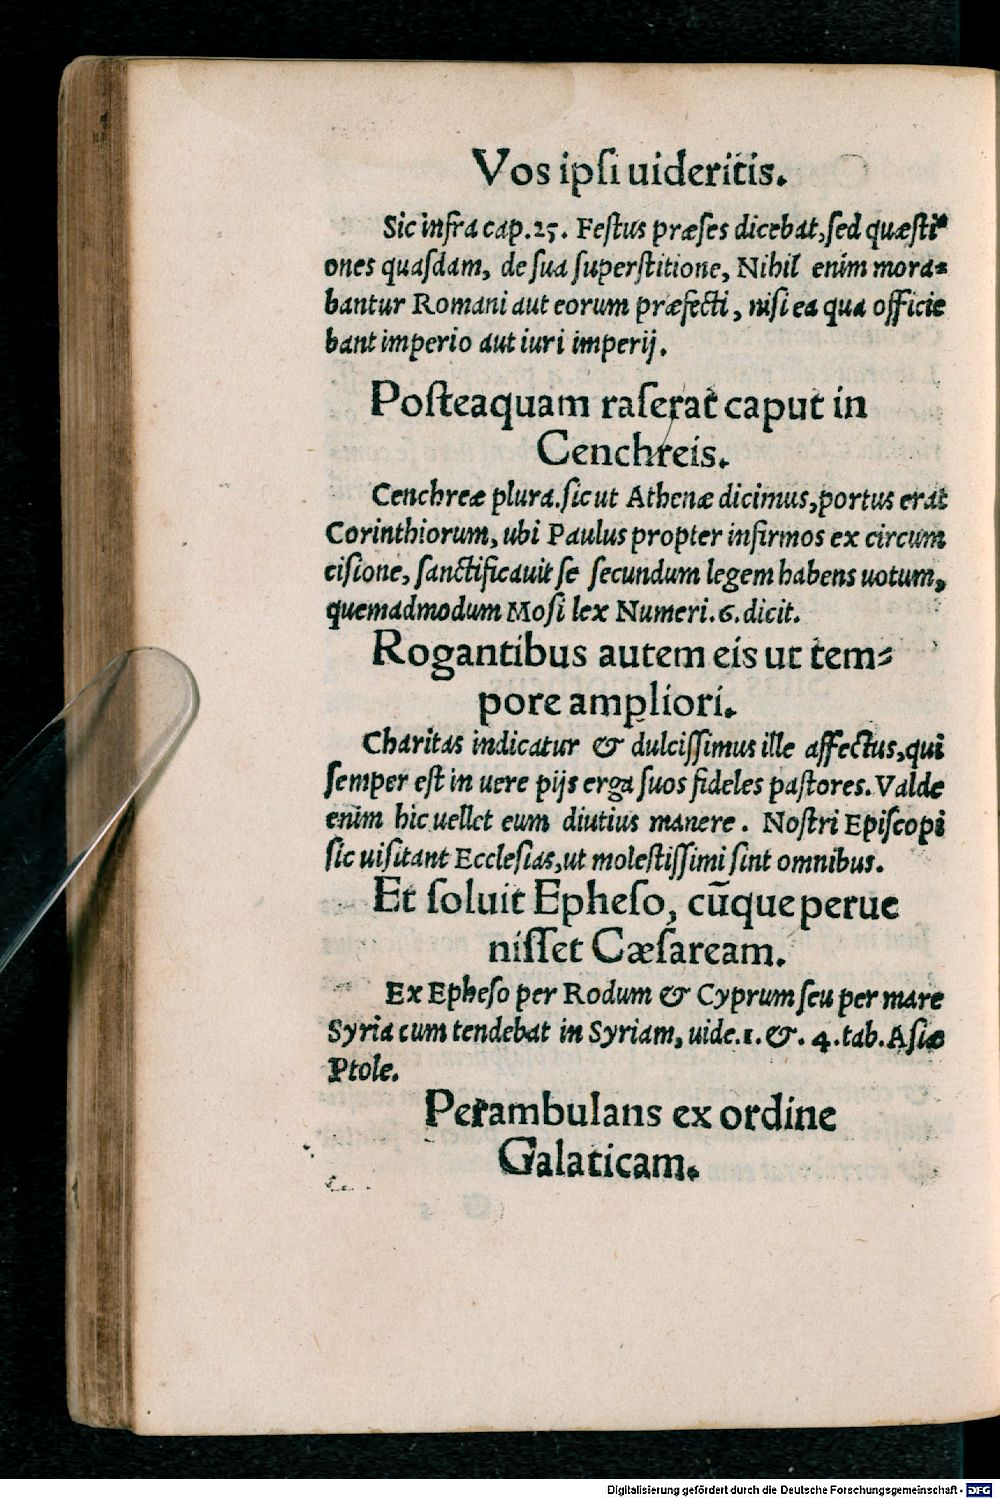 Vos ipſi uideritis.
Sic infra cap. 25. Feſtus præſes dicebat, ſed quæſti-
ones quaſdam, de ſua ſuperſtitione, Nihil enim mora-
bantur Romani aut eorum præfecti, niſi ea qua officie
bant imperio aut iuri imperij.
Poſteaquam raſerat caput in
Cenchreis.
Cenchreæ plura. ſicut Athenæ dicimus, portus erat
Corinthiorum, ubi Paulus propter infirmos ex circum
ciſione, ſanctificauit ſe ſecundum legem habens uotum,
quemadmodum Moſi lex Numeri. 6. dicit.
Rogantibus autem eis ut tem-
pore ampliori.
Charitas indicatur & dulciſſimus ille affectus, qui
ſemper eſt in uere pijs erga ſuos fideles paſtores. Valde
enim hic uellet eum diutius manere. Noſtri Epiſcopi
ſic uiſitant Eccleſias, ut moleſtiſſimi ſint omnibus.
Et ſoluit Epheſo, cūque perue
niſſet Cæſaream.
Ex Epheſo per Rodum & Cyprum ſeu per mare
Syria cum tendebat in Syriam, uide. 1. &. 4. tab. Aſiæ
Ptole.
Perambulans ex ordine
Galaticam.
Digitalisierung gefördert durch die Deutsche Forschungsgemeinschaft - DFG